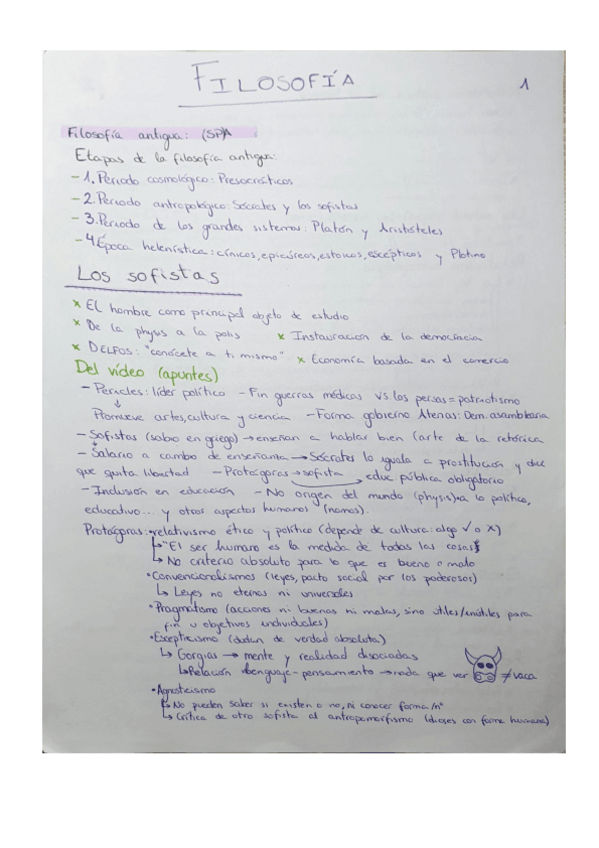 FILOSOFÍA
1
Filosofía antigua: (SPA
Etapas de la filosofía antigua:
- 1. Periodo cosmológico: Presocráticos
- 2. Periodo antropológico: Sócrates y los sofistas
- 3. Periodo de los grandes sistemas: Platón y Aristóteles
- 4. Época helenística: cínicos, epicúreos, estoicos, escépticos y Plotino
Los sofistas
x El hombre como principal objeto de estudio
x De la physis a la polis x Instauracion de la democracia
x DELFOS: "conócete a ti mismo" x Economía basada en el comercio
Del vídeo (apuntes)
- Pericles: líder político - Fin guerras médicas vs los persas = patriotismo
↓
Promueve artes, cultura y ciencia - Forma gobierno Atenas: Dem. asamblearia
- Sofistas (sabio en griego) → enseñan a hablar bien (arte de la retórica
- Salario a cambio de enseñanza → Sócrates lo iguala a prostitución y dice
que quita libertad - Protágoras → sofista educ pública obligatorio
- Inclusión en educación - No origen del mundo (physis) → a lo político,
educativo... y otros aspectos humanos (nomos).
Protágoras: • relativismo ético y político (depende de cultura: algo ✓ o X)
↳ "El ser humano es la medida de todas las cosas"
↳ No criterio absoluto para lo que es bueno o malo
• Convencionalismos (leyes, pacto social por los poderosos)
↳ Leyes no eternas ni universales
• Pragmatismo (acciones ni buenas ni malas, sino útiles/inútiles para
fin u objetivos individuales)
• Escepticismo (dudan de verdad absoluta)
↳ Gorgias → mente y realidad disociadas
↳ Relación lenguaje - pensamiento → nada que ver ≠ vaca
• Agnosticismo
↳ No pueden saber si existen o no, ni conocer forma/nº
↳ Crítica de otro sofista al antropomorfismo (dioses con forma humana)